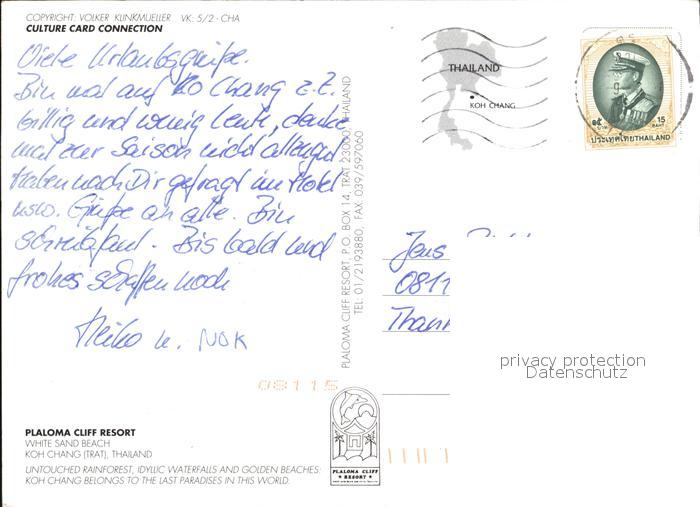 COPYRIGHT: VOLKER KLINKMUELLER VK: 5/2 - CHA
CULTURE CARD CONNECTION
Viele Urlaubsgrüße.
Bin mal auf Ko Chang z.Z.
billig und wenig Leute, denke
mal zur Saison nicht
Haben nach Dir gefragt im Hotel
usw. Grüße an alle. Bin
schreibfaul. Bis bald und
frohes schaffen noch
Heiko u. NOK
PLALOMA CLIFF RESORT, P.O. BOX 14, TRAT 23000, THAILAND
TEL: 01/2193880, FAX: 039/597060
THAILAND
KOH CHANG
๑๕ บาท 15 BAHT
ประเทศไทย THAILAND
Jens
0811
Thann
privacy protection
Datenschutz
08115
PLALOMA CLIFF RESORT
WHITE SAND BEACH
KOH CHANG (TRAT), THAILAND
UNTOUCHED RAINFOREST, IDYLLIC WATERFALLS AND GOLDEN BEACHES:
KOH CHANG BELONGS TO THE LAST PARADISES IN THIS WORLD.
PLALOMA CLIFF
RESORT